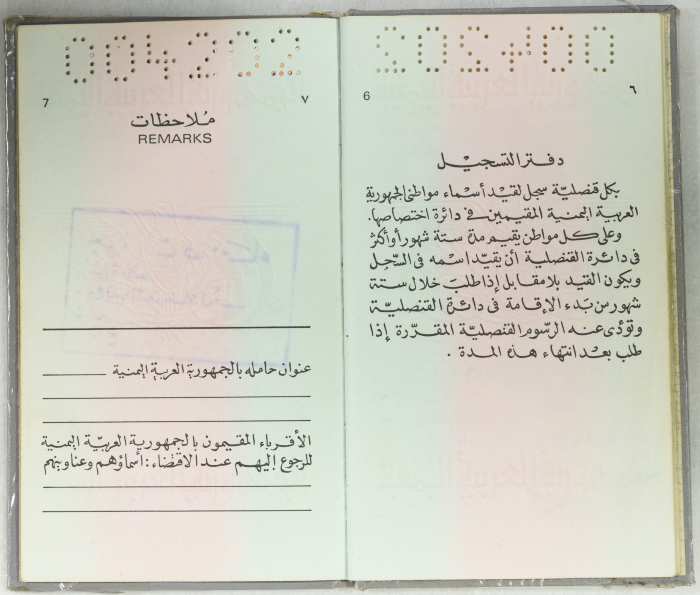 004202
7
٧
مُلاحظات
REMARKS
عنوان حامله بالجمهورية العربية اليمنية
الأقرباء المقيمون بالجمهورية العربيّة اليمنية
للرجوع إليهم عند الاقتضاء : أسماؤهم وعناوينهم
6
٦
دفتر التسجيل
بكل قنصليّة سجل لقيد أسماء مواطنى الجمهورية
العربية اليمنية المقيمين فى دائرة اختصاصها.
وعلى كل مواطن يقيم مدة ستة شهور أو أكثر
فى دائرة القنصلية أن يقيّد اسمه فى السّجل
ويكون القيد بلا مقابل إذا طلبَ خلال ستة
شهور من بَدء الإقامة فى دائرة القنصليّة
وتؤدّى عنه الرّسوم القنصليّة المقرّرة إذا
طلب بعد انتهاء هذه المدة .